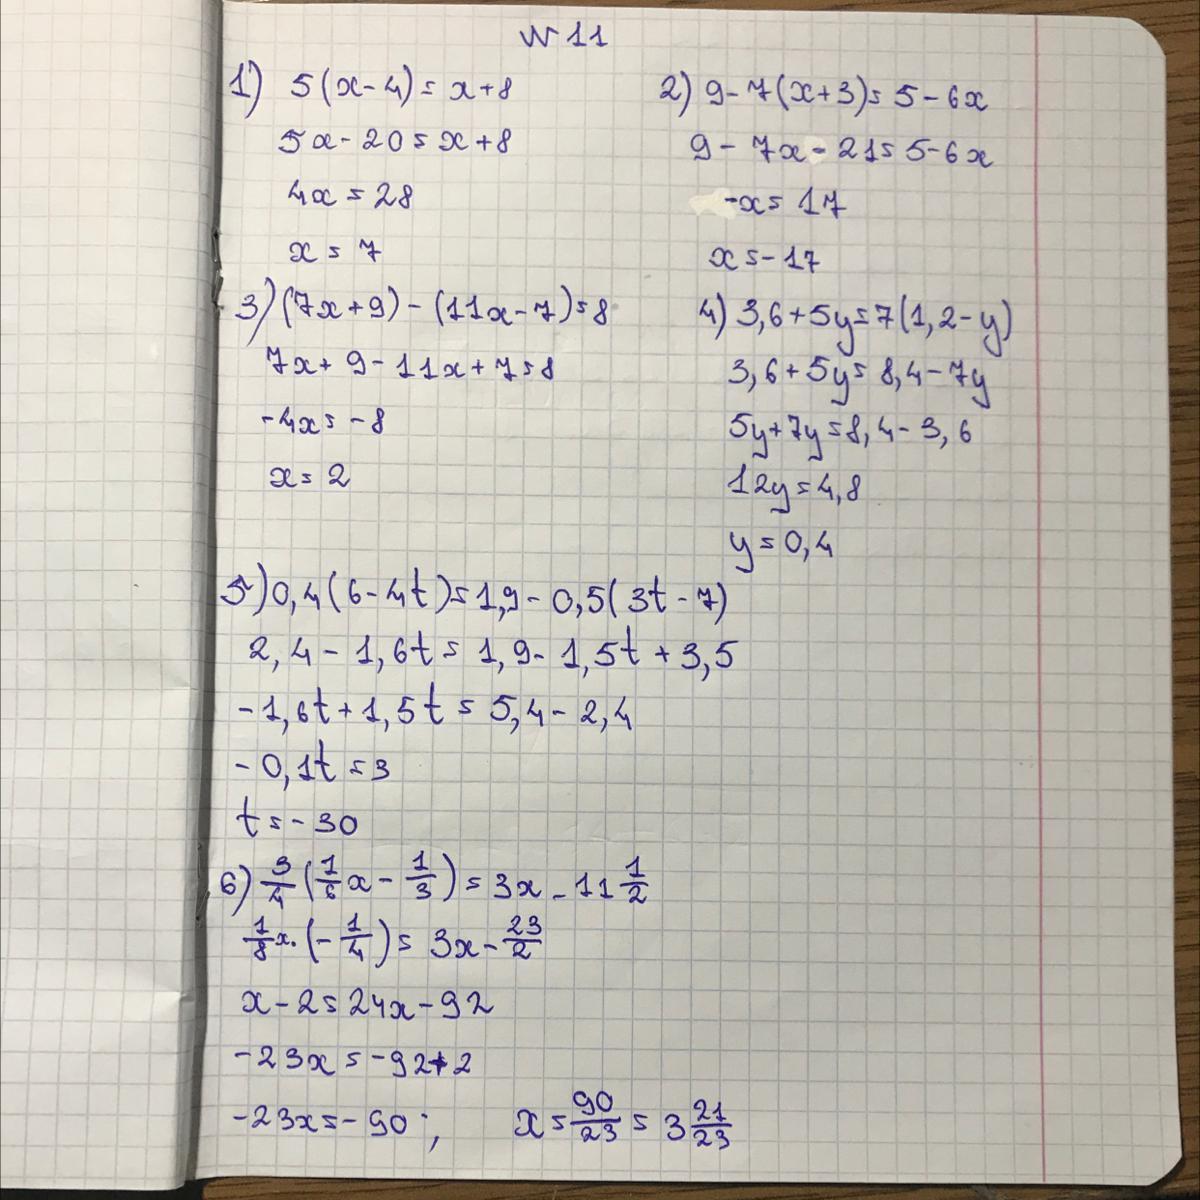 N 11
1) 5(x-4)=x+8
5x-20=x+8
4x=28
x=7
2) 9-7(x+3)=5-6x
9-7x-21=5-6x
-x=17
x=-17
3) (7x+9)-(11x-7)=8
7x+9-11x+7=8
-4x=-8
x=2
4) 3,6+5y=7(1,2-y)
3,6+5y=8,4-7y
5y+7y=8,4-3,6
12y=4,8
y=0,4
5) 0,4(6-4t)=1,9-0,5(3t-7)
2,4-1,6t=1,9-1,5t+3,5
-1,6t+1,5t=5,4-2,4
-0,1t=3
t=-30
6) 3/4(1/6x-1/3)=3x-11 1/2
1/8x·(-1/4)=3x-23/2
x-2=24x-92
-23x=-92+2
-23x=-90; x=90/23=3 21/23